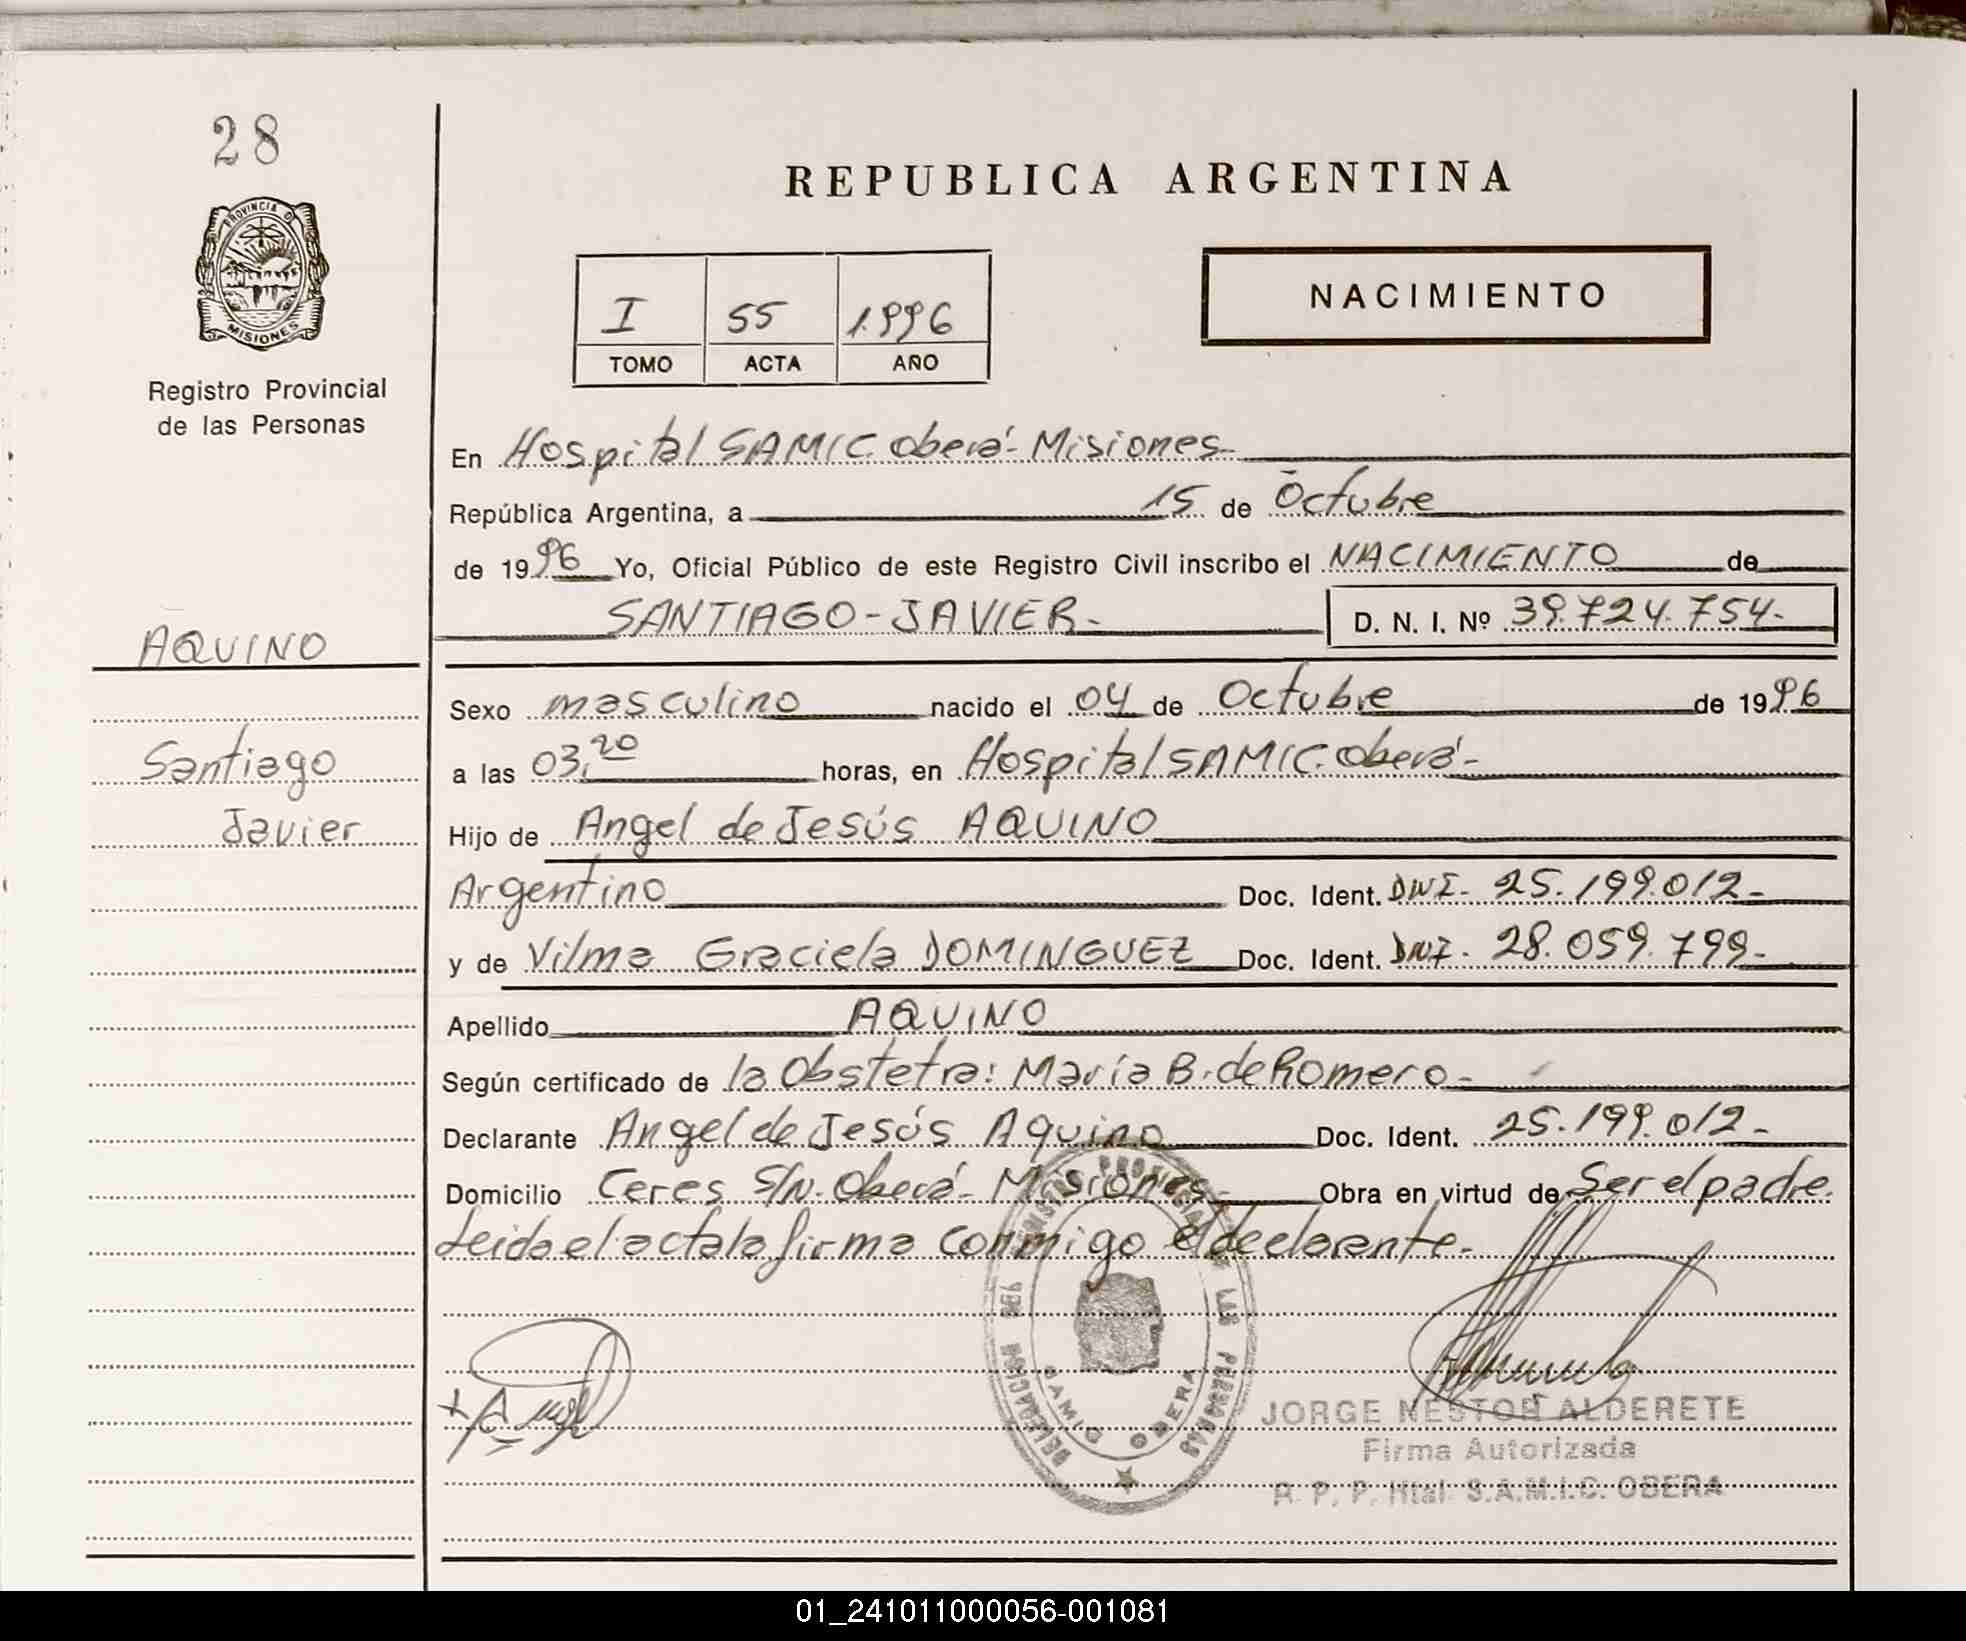 28
PROVINCIA D
MISIONES
Registro Provincial
de las Personas
REPUBLICA ARGENTINA
I 55 1.996
TOMO ACTA AÑO
NACIMIENTO
En Hospital SAMIC. Oberá - Misiones -
República Argentina, a 15 de Octubre
de 1996 Yo, Oficial Público de este Registro Civil inscribo el NACIMIENTO de
SANTIAGO - JAVIER - D. N. I. Nº 39.724.754-
AQUINO
Santiago
Javier
Sexo masculino nacido el 04 de Octubre de 1996
a las 03,20 horas, en Hospital SAMIC. Oberá -
Hijo de Angel de Jesús AQUINO
Argentino Doc. Ident. DNI- 25.199.012-
y de Vilma Graciela DOMINGUEZ Doc. Ident. DNI- 28.059.799-
Apellido AQUINO
Según certificado de la Obstetra: María B. de Romero -
Declarante Angel de Jesús Aquino Doc. Ident. 25.199.012-
Domicilio Ceres S/N. Oberá - Misiones - Obra en virtud de Ser el padre.
Leida el acta la firma conmigo el declarante -
DELEGACION
LAS PERSONAS
SAMIC OBERA
JORGE NESTOR ALDERETE
Firma Autorizada
R. P. P. Htal. S.A.M.I.C. OBERA
01_241011000056-001081